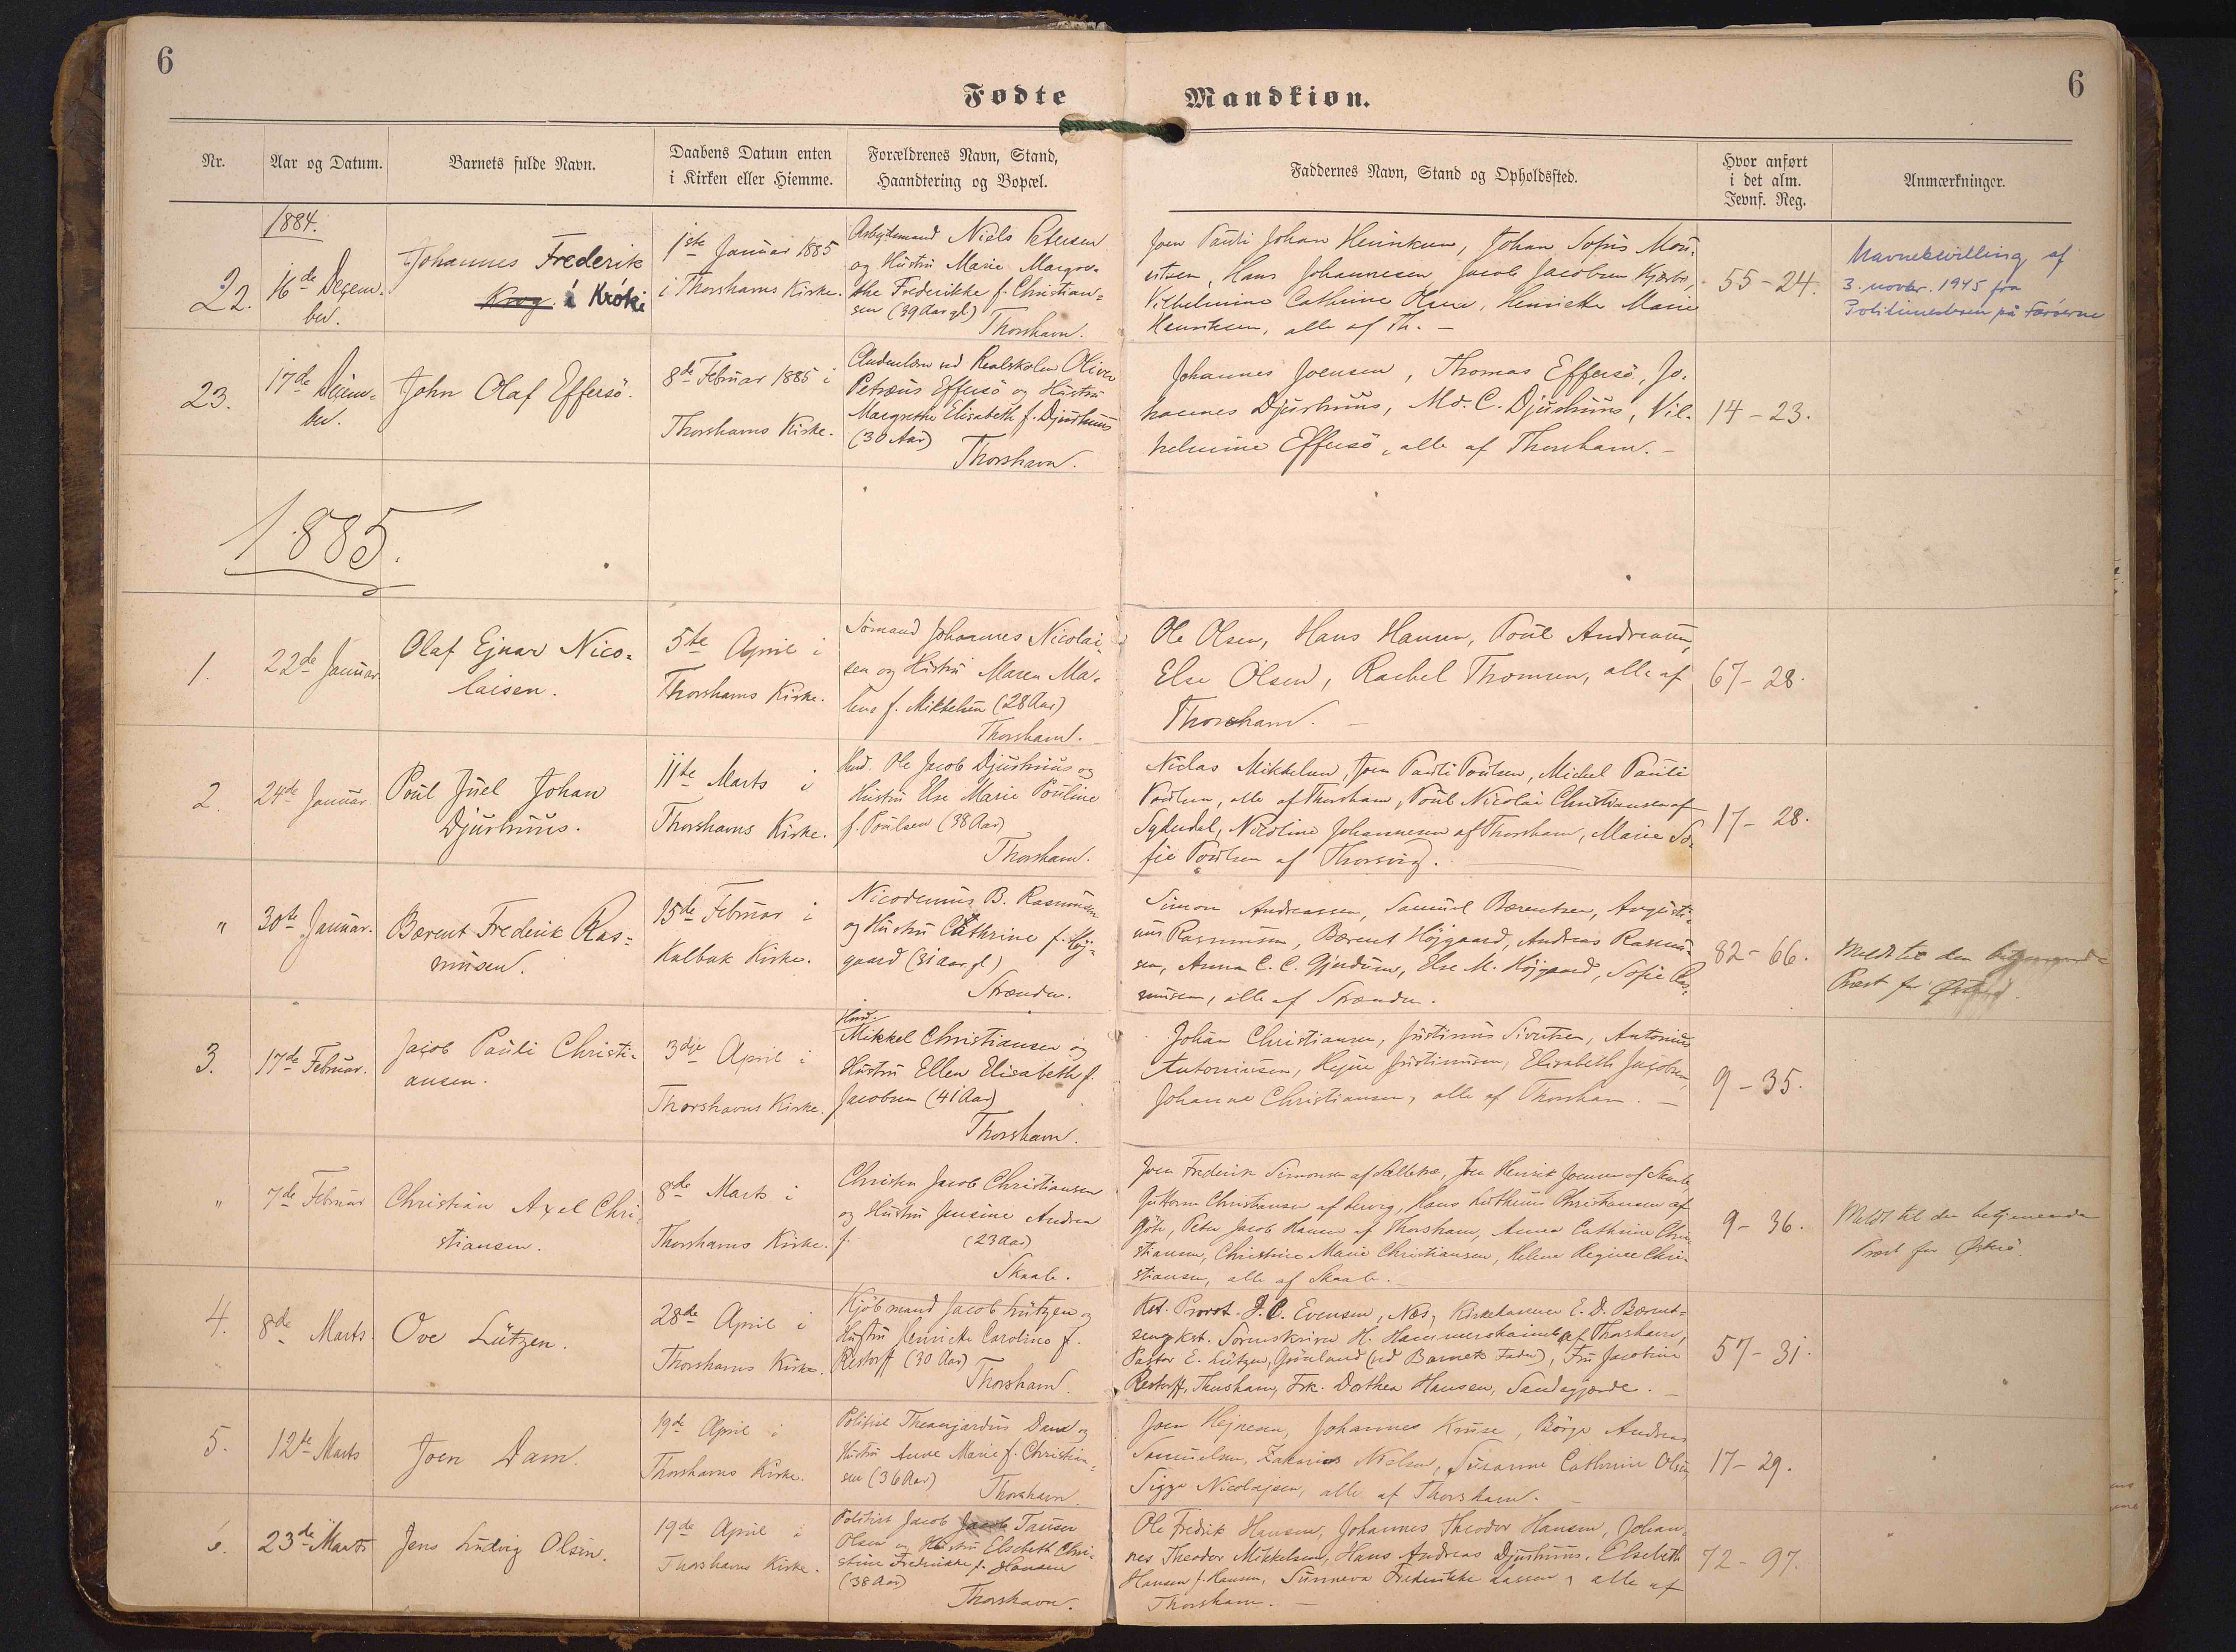 6
6
Fødte
Mandkiøn.
Nr.
Aar og Datum.
Barnets fulde Navn.
Daabens Datum enten
i Kirken eller Hiemme.
Forældrenes Navn, Stand,
Haandtering og Bopæl.
Faddernes Navn, Stand og Opholdssted.
Hvor anført
i det alm.
Jevnf. Reg.
Anmærkninger.
1884.
22.
16de Decem-
ber.
Johannes Frederik
Krog í Króki
1ste Januar 1885
i Thorshavns Kirke.
Arbejdsmand Niels Petersen
og Hustru Marie Margre-
the Frederikke f. Christian-
sen (39 Aar gl)
Thorshavn.
Joen Pauli Johan Henriksen, Johan Sofus
Hans Johannesen, Jacob Jacobsen Kjærbo,
Vilhelmine Cathrine Olsen, Henriette Marie
Henriksen, alle af Th. -
55-24.
Navnebevilling af
3. novbr. 1945 fra
Politimesteren på Færøerne
23.
17de Decem-
ber.
John Olaf Effersö.
8de Februar 1885 i
Thorshavns Kirke.
Andenlærer ved Realskolen Oliver
Petræus Effersö og Hustru
Margrethe Elisabeth f. Djurhuus
(30 Aar)
Thorshavn.
Johannes Joensen, Thomas Effersö, Jo-
hannes Djurhuus, Md. C. Djurhuus, Vil-
helmine Effersö, alle af Thorshavn. -
14-23.
1885.
1.
22de Januar.
Olaf Ejnar Nico-
laisen.
5te April i
Thorshavns Kirke.
Sömand Johannes Nicolai-
sen og Hustru Maren Ma-
lene f. Mikkelsen (28 Aar)
Thorshavn.
Ole Olsen, Hans Hansen, Poul Andreasen,
Else Olsen, Rachel Thomsen, alle af
Thorshavn. -
67-28.
2.
24de Januar.
Poul Juel Johan
Djurhuus.
11te Marts i
Thorshavns Kirke.
Ole Jacob Djurhuus og
Hustru Else Marie Pouline
f. Poulsen (38 Aar)
Thorshavn.
Niclas Mikkelsen, Joen Pauli Poulsen, Michel Pauli
Poulsen, alle af Thorshavn, Poul Nicolai Christiansen af
Syderdal, Nicoline Johannesen af Thorshavn, Marie So-
fie Poulsen af Thorsvig.
17-28.
"
30te Januar.
Bærent Frederik Ras-
musen.
15de Februar i
Kalbak Kirke.
Nicodemus B. Rasmusen
og Hustru Cathrine f. Höj-
gaard (31 Aar gl)
Strænder.
Simon Andreassen, Samuel Bærentsen, Augusti-
nus Rasmusen, Bærent Höjgaard, Andreas Rasmu-
sen, Anna C. C. Else M. Höjgaard, Sofie Ras-
musen, alle af Strænder.
82-66.
Meldt til den betjenende
Præst for Österö.
3.
17de Februar.
Jacob Pauli Christi-
ansen.
3die April i
Thorshavns Kirke.
Mikkel Christiansen og
Hustru Ellen Elisabeth f.
Jacobsen (41 Aar)
Thorshavn.
Johan Christiansen, Justinus Sivertsen, Antonius
Antoniusen, Justinusen, Elisabeth Jacobsen,
Johanne Christiansen, alle af Thorshavn. -
9-35.
"
7de Februar
Christian Axel Chri-
stiansen.
8de Marts i
Thorshavns Kirke.
Christen Jacob Christiansen
og Hustru Jensine Andrea
f. (23 Aar)
Skaale.
Joen Frederik Simonsen af Selletræ, Joen Henrik Joensen af Skaale,
Guttorm Christiansen af Lervig, Hans Christiansen af
Göte, Peter Jacob Hansen af Thorshavn, Anna Cathrine Chri-
stiansen, Christine Marie Christiansen, Helene Regine Chri-
stiansen, alle af Skaale.
9-36.
Meldt til den betjenende
Præst for Österö.
4.
8de Marts
Ove Lützen.
28de April i
Thorshavns Kirke.
Kjöbmand Jacob Lützen og
Hustru Henriette Caroline f.
Restorff (30 Aar)
Thorshavn.
Kst. Provst J. C. Evensen, Næs, Kirkekasserer E. D. Bærent-
sen, kst. Sorenskriver H. Hammershaimb af Thorshavn,
Pastor E. Lützen, Grönland (ved Barnets Fader), Fru Jacobine
Restorff, Thorshavn, Frk. Dorthea Hansen, Sandegjærde. -
57-31.
5.
12te Marts
Joen Dam.
19de April i
Thorshavns Kirke.
Politist Dam og
Hustru Anne Marie f. Christian-
sen (36 Aar)
Thorshavn.
Joen Hejnesen, Johannes Kruse, Börge Andreas
Samuelsen, Zakarias Nielsen, Susanne Cathrine Olsen,
Sigga Nicolajsen, alle af Thorshavn. -
17-29.
6.
23de Marts
Jens Ludvig Olsen.
19de April i
Thorshavns Kirke.
Politist Jacob Tausen
Olsen og Hustru Elsebeth Chri-
stine Frederikke f. Hansen
(38 Aar)
Thorshavn.
Ole Fredrik Hansen, Johannes Theodor Hansen, Johan-
nes Theodor Mikkelsen, Hans Andreas Djurhuus, Elsebeth
Hansen f. Hansen, Sunneva Frederikke Lassen, alle af
Thorshavn. -
72-97.